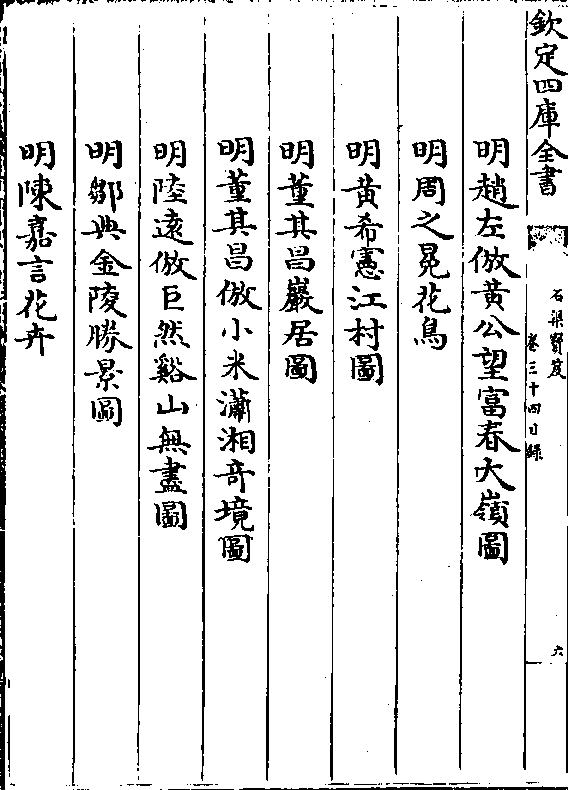 欽定四庫全書
石渠寳笈
卷三十四目録
六
明趙左倣黃公望富春大嶺圖
明周之冕花鳥
明黃希憲江村圖
明董其昌巖居圖
明董其昌倣小米瀟湘竒境圖
明陸遠倣巨然谿山無盡圖
明鄒典金陵勝景圖
明陳嘉言花卉